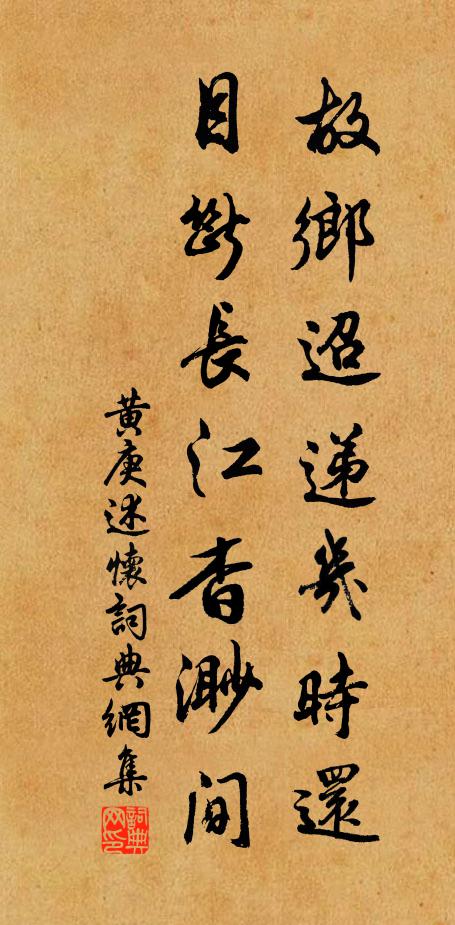 故鄉迢遞幾時還
目斷長江杳渺間
黃庚述懷詞典網集
詞典网印